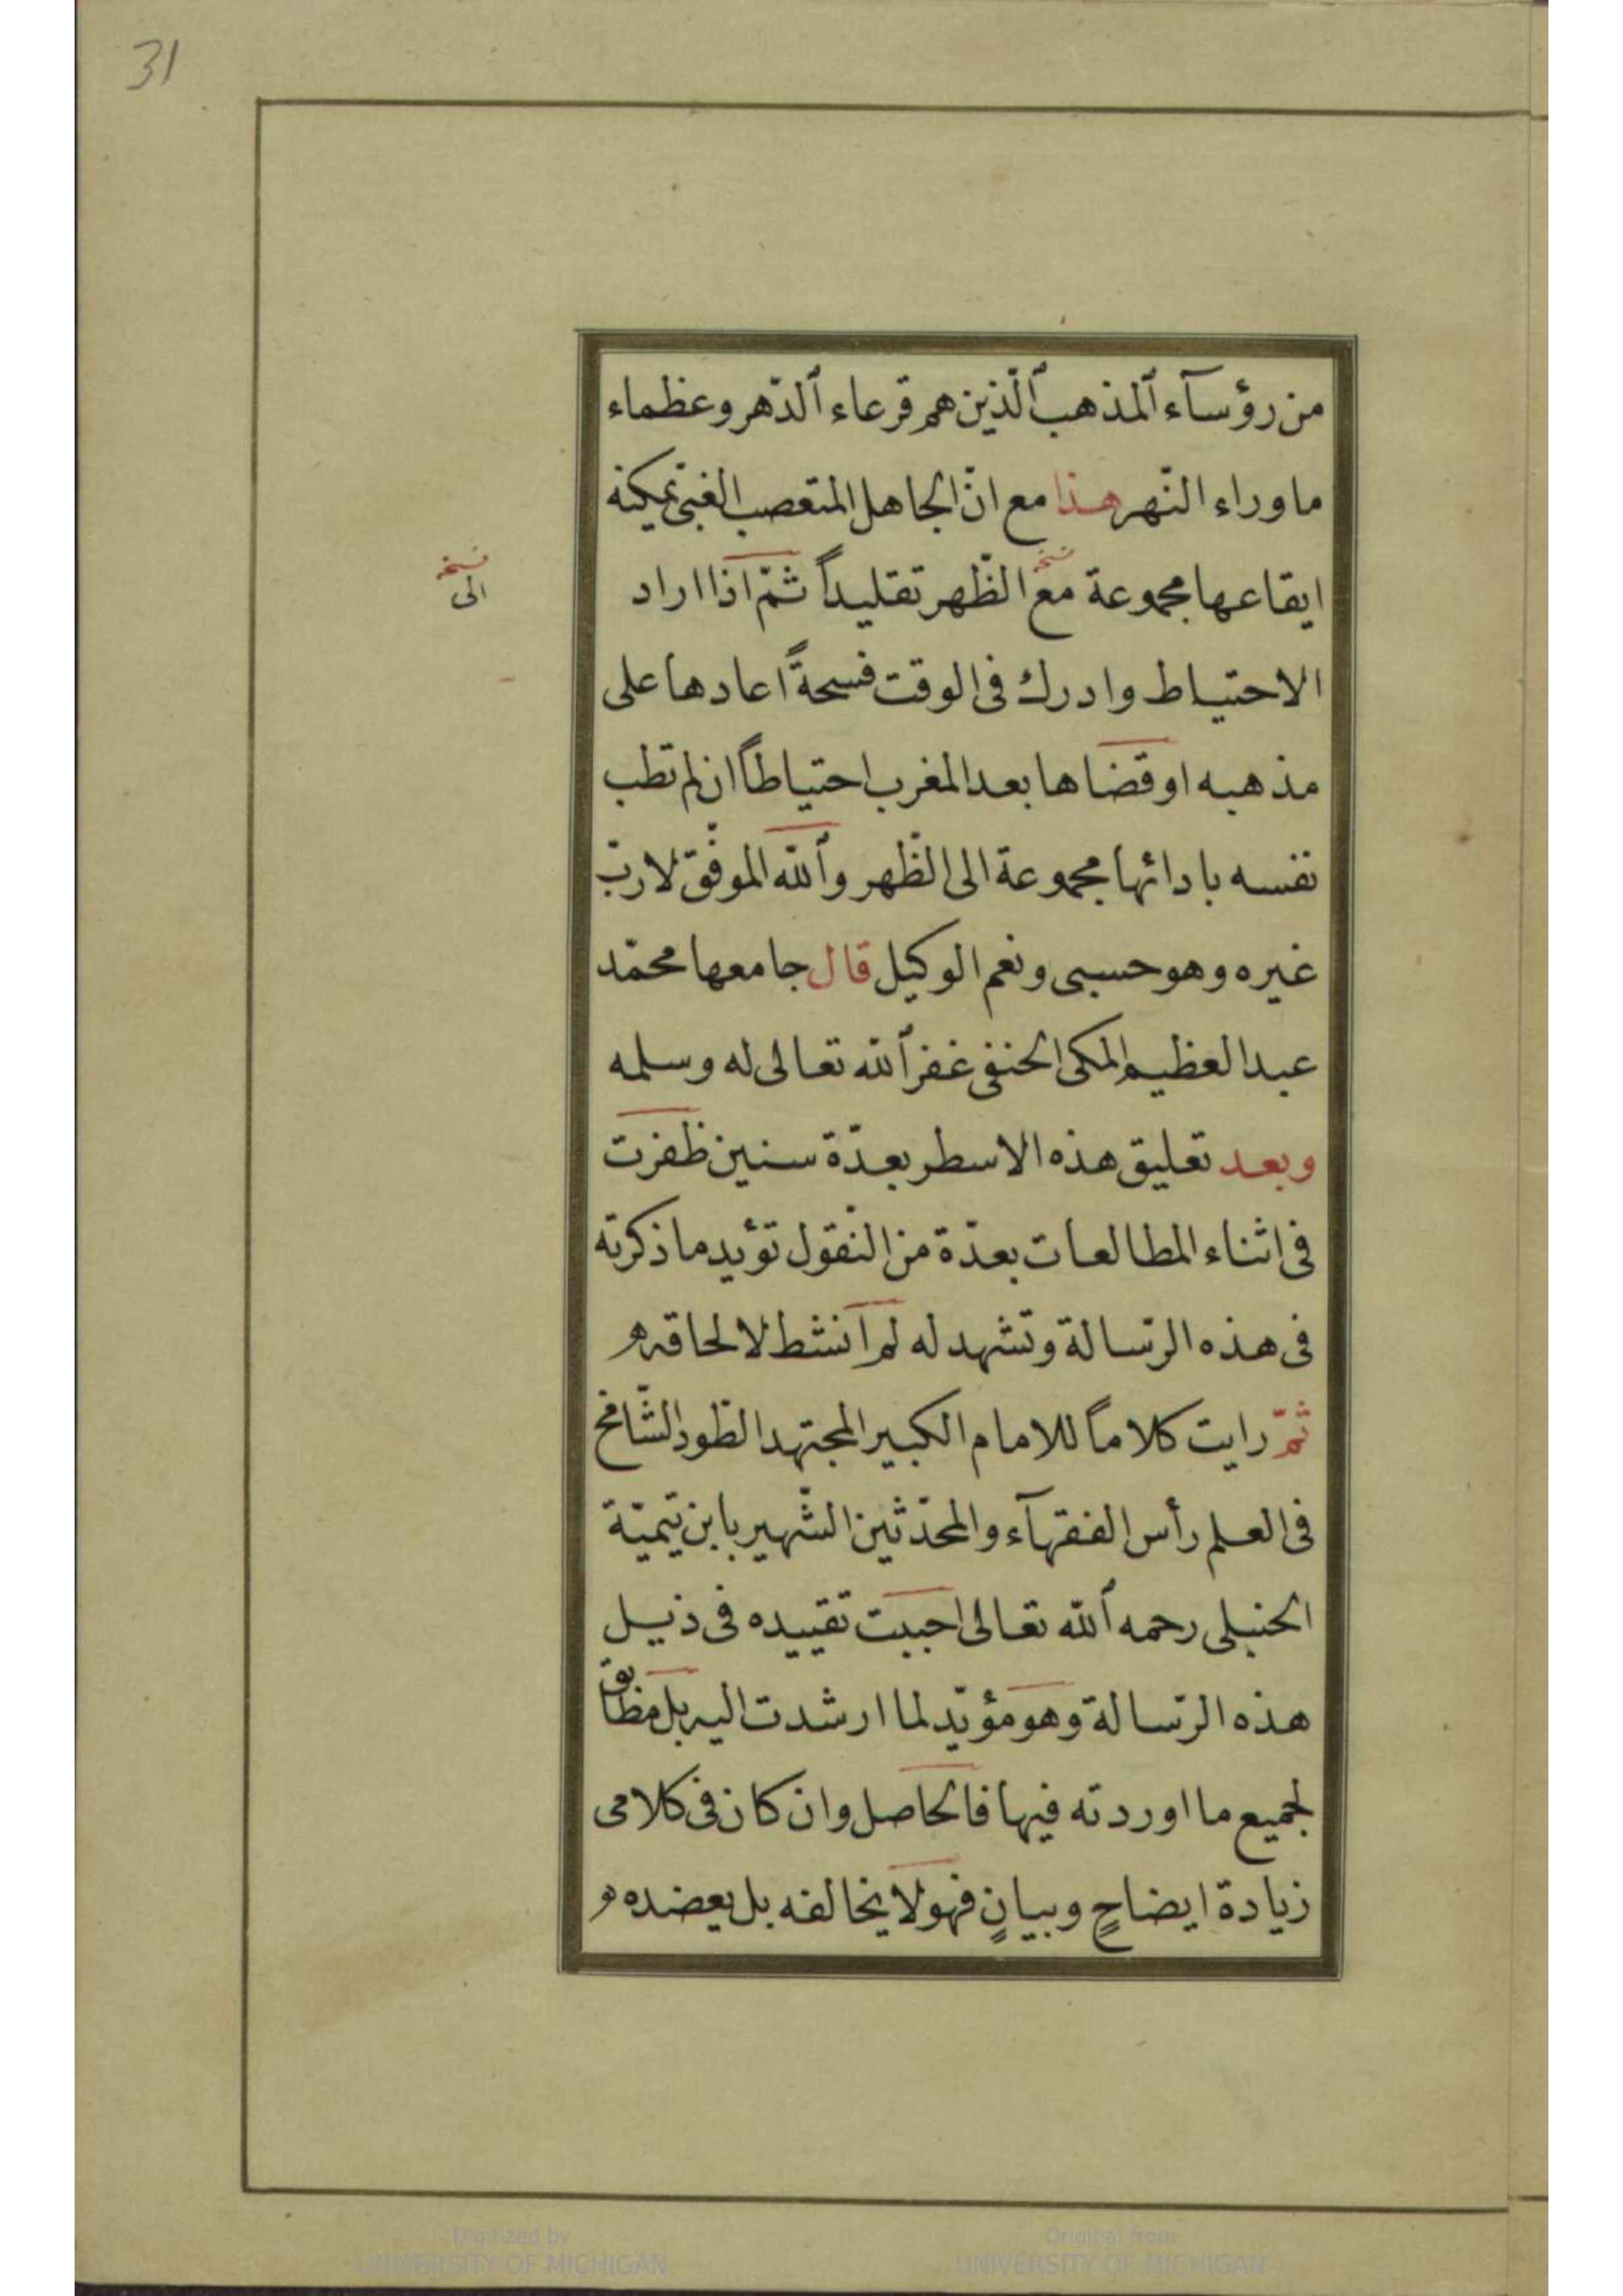 31
من رؤسآء ٱلمذهب ٱلّذين هم قرعاء ٱلدّهر وعظماء
ماوراء النّهر هذا مع انّ الجاهل المتعصب الغبيّ يمكنه
ايقاعها مجموعة مع الظّهر تقليداً ثمّ اذا اراد
نسخه
الى
الاحتياط وادرك فى الوقت فسحةً اعادها على
مذهبه او قضاها بعد المغرب احتياطاً ان لم تطب
نفسه بادائها مجموعة الى الظّهر وٱللّه الموفّق لا ربّ
غيره وهو حسبى ونعم الوكيل قال جامعها محمّد
عبد العظيم المكى الحنفى غفر ٱللّه تعالى له وسلمه
وبعد تعليق هذه الاسطر بعدّة سنين ظفرت
فى اثناء المطالعات بعدّة من النّقول تؤيد ما ذكرته
فى هذه الرّسالة وتشهد له لم انشط لالحاقه
ثمّ رايت كلاماً للامام الكبير المجتهد الطّود الشّامخ
فى العلم رأس الفقهآء والمحدّثين الشّهير بابن تيميّة
الحنبلى رحمه ٱللّه تعالى احببت تقييده فى ذيل
هذه الرّسالة وهو مؤيّد لما ارشدت اليه بل مطابق
لجميع ما اوردته فيها فالحاصل وان كان فى كلامى
زيادة ايضاحٍ وبيانٍ فهو لا يخالفه بل يعضده
Digitized by
UNIVERSITY OF MICHIGAN
Original from
UNIVERSITY OF MICHIGAN